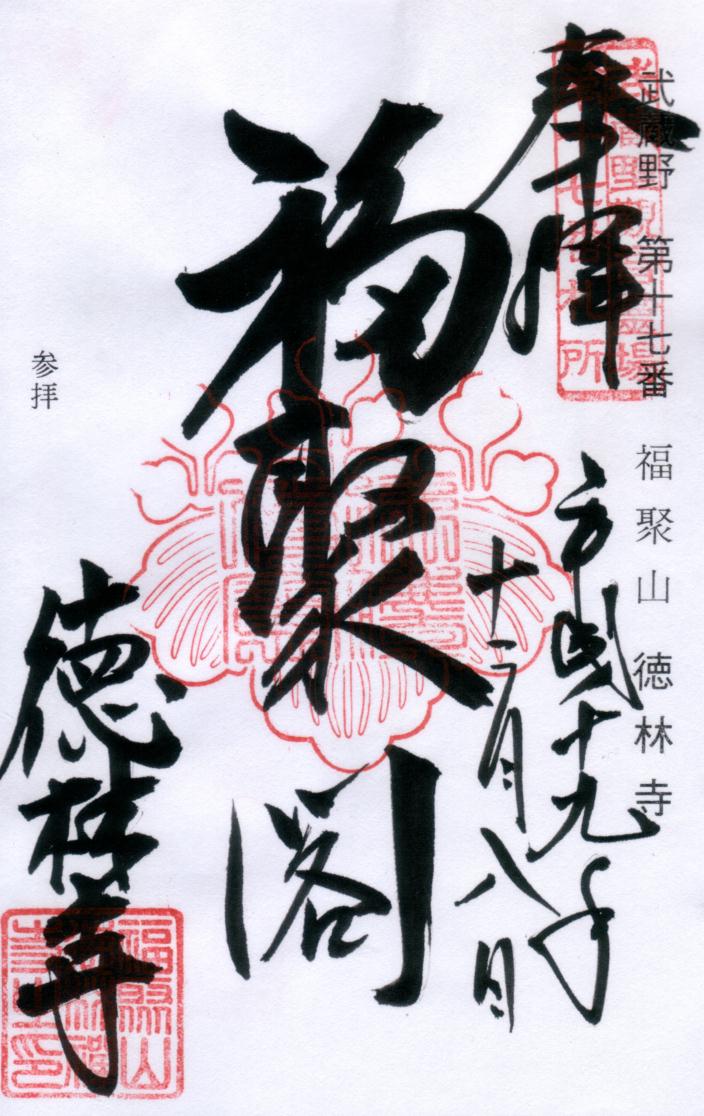 武蔵野 第十七番 福聚山 徳林寺
奉拝
平成十九年
十二月八日
福聚閣
徳林寺
参拝